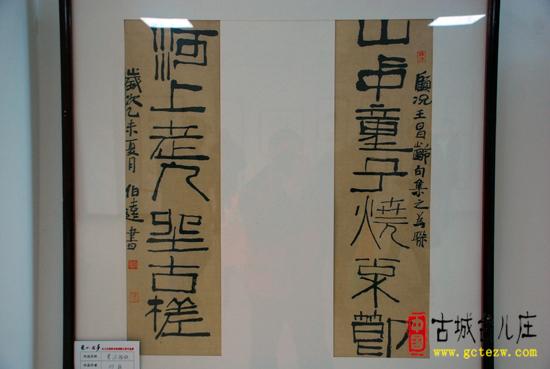 山中童子燒松節
顧況王昌齡句集之為聯
河上老人坐古槎
歲次乙未夏月 伯達書
中国
古城台儿庄
www.gctezw.com